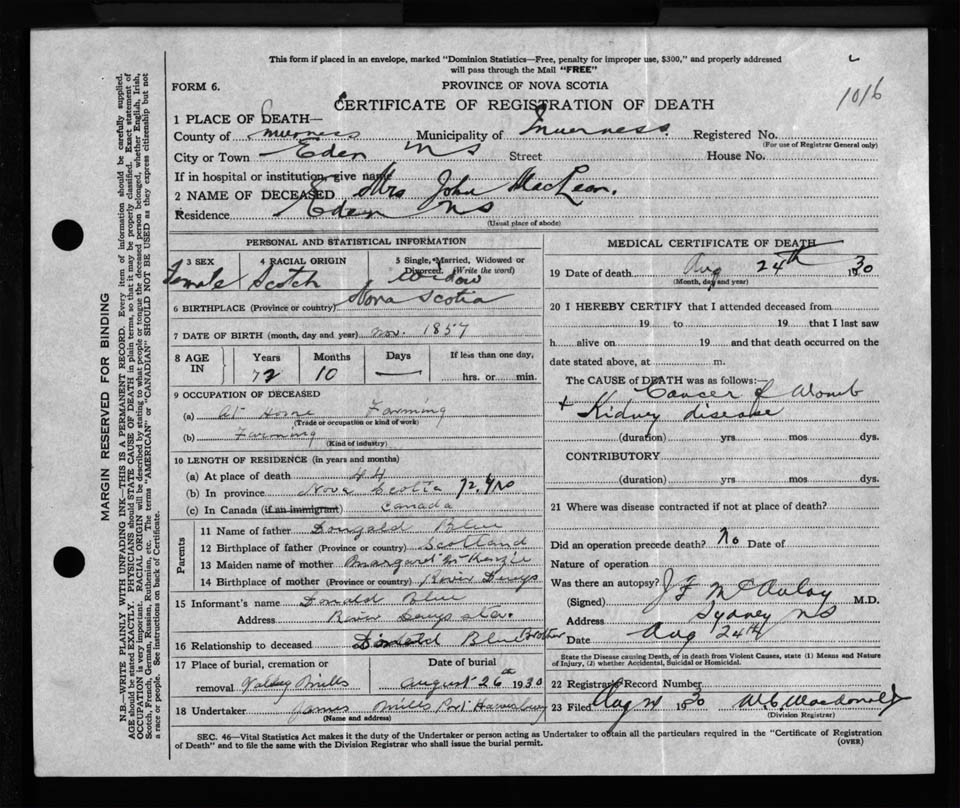 This form if placed in an envelope, marked "Dominion Statistics—Free, penalty for improper use, $300," and properly addressed
will pass through the Mail "FREE"
FORM 6.
PROVINCE OF NOVA SCOTIA
1016
CERTIFICATE OF REGISTRATION OF DEATH
1 PLACE OF DEATH—
County of Inverness Municipality of Inverness. Registered No.
(For use of Registrar General only)
City or Town Eden NS Street House No.
If in hospital or institution, give name
2 NAME OF DECEASED Mrs John MacLean.
Residence Eden NS
(Usual place of abode)
PERSONAL AND STATISTICAL INFORMATION
3 SEX 4 RACIAL ORIGIN 5 Single, Married, Widowed or
Divorced. (Write the word)
Female Scotch widow
6 BIRTHPLACE (Province or country) Nova Scotia
7 DATE OF BIRTH (month, day and year) Nov. 1857
8 AGE IN Years Months Days If less than one day,
72 10 — hrs. or min.
9 OCCUPATION OF DECEASED
(a) At Home Farming
(Trade or occupation or kind of work)
(b) Farming
(Kind of industry)
10 LENGTH OF RESIDENCE (in years and months)
(a) At place of death 44
(b) In province Nova Scotia 72 yrs
(c) In Canada (if an immigrant) Canada
Parents
11 Name of father Dougald Blue
12 Birthplace of father (Province or country) Scotland
13 Maiden name of mother Margaret McKenzie
14 Birthplace of mother (Province or country) River Denys
15 Informant's name Donald Blue
Address River Denys Sta.
16 Relationship to deceased Donald Blue Brother
17 Place of burial, cremation or Date of burial
removal Valley Mills August 26th 1930
18 Undertaker James Mills Port Hawkesbury
(Name and address)
MEDICAL CERTIFICATE OF DEATH
19 Date of death Aug 24th 1930
(Month, day and year)
20 I HEREBY CERTIFY that I attended deceased from
19 to 19 that I last saw
h alive on 19 and that death occurred on the
date stated above, at m.
The CAUSE of DEATH was as follows:
Cancer of Womb
+ Kidney disease
(duration) yrs. mos dys.
CONTRIBUTORY
(duration) yrs. mos. dys.
21 Where was disease contracted if not at place of death?
Did an operation precede death? No Date of
Nature of operation
Was there an autopsy?
(Signed) J F McAulay M.D.
Address Sydney NS
Date Aug 24th
State the Disease causing Death, or in death from Violent Causes, state (1) Means and Nature
of Injury, (2) whether Accidental, Suicidal or Homicidal.
22 Registrar's Record Number
23 Filed Aug 30 MacDonald
(Division Registrar)
SEC. 46—Vital Statistics Act makes it the duty of the Undertaker or person acting as Undertaker to obtain all the particulars required in the "Certificate of Registration
of Death" and to file the same with the Division Registrar who shall issue the burial permit.
(OVER)
MARGIN RESERVED FOR BINDING
N.B.—WRITE PLAINLY WITH UNFADING INK—THIS IS A PERMANENT RECORD. Every item of information should be carefully supplied.
AGE should be stated EXACTLY. PHYSICIANS should STATE CAUSE OF DEATH in plain terms, so that it may be properly classified. Exact statement of
OCCUPATION is very important. RACIAL ORIGIN will be described by stating to what people or tongue the deceased person belonged, whether English, Irish,
Scotch, French, German, Russian, Ruthenian, etc. The terms "AMERICAN" or "CANADIAN" SHOULD NOT BE USED as they express citizenship but not
a race or people. See instructions on back of Certificate.